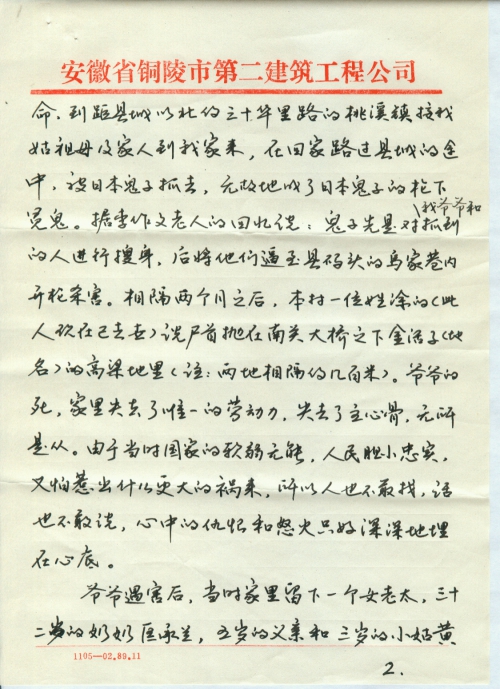 安徽省铜陵市第二建筑工程公司
命，到距县城以北约三十华里路的桃溪镇接我
姑祖母及家人到我家来，在回家路过县城的途
中，被日本鬼子抓去，无故地成了日本鬼子的枪下
冤鬼。据李作文老人的回忆说：鬼子先是对抓到
我爷爷和
的人进行搜身，后将他们逼至县码头的乌家巷内
开枪杀害。相隔两个月之后，本村一位姓涂的（此
人现在已去世）说尸首抛在南关大桥之下金沿子（地
名）的高梁地里（注：两地相隔约几百米）。爷爷的
死，家里失去了唯一的劳动力，失去了主心骨，无所
是从。由于当时国家的软弱无能，人民胆小忠实，
又怕惹出什么更大的祸来，所以人也不敢找，话
也不敢说，心中的仇恨和怒火只好深深地埋
在心底。
爷爷遇害后，当时家里留下一个女老太，三十
二岁的奶奶匡承兰，五岁的父亲和三岁的小姑黄
1105—02.89.11
2.